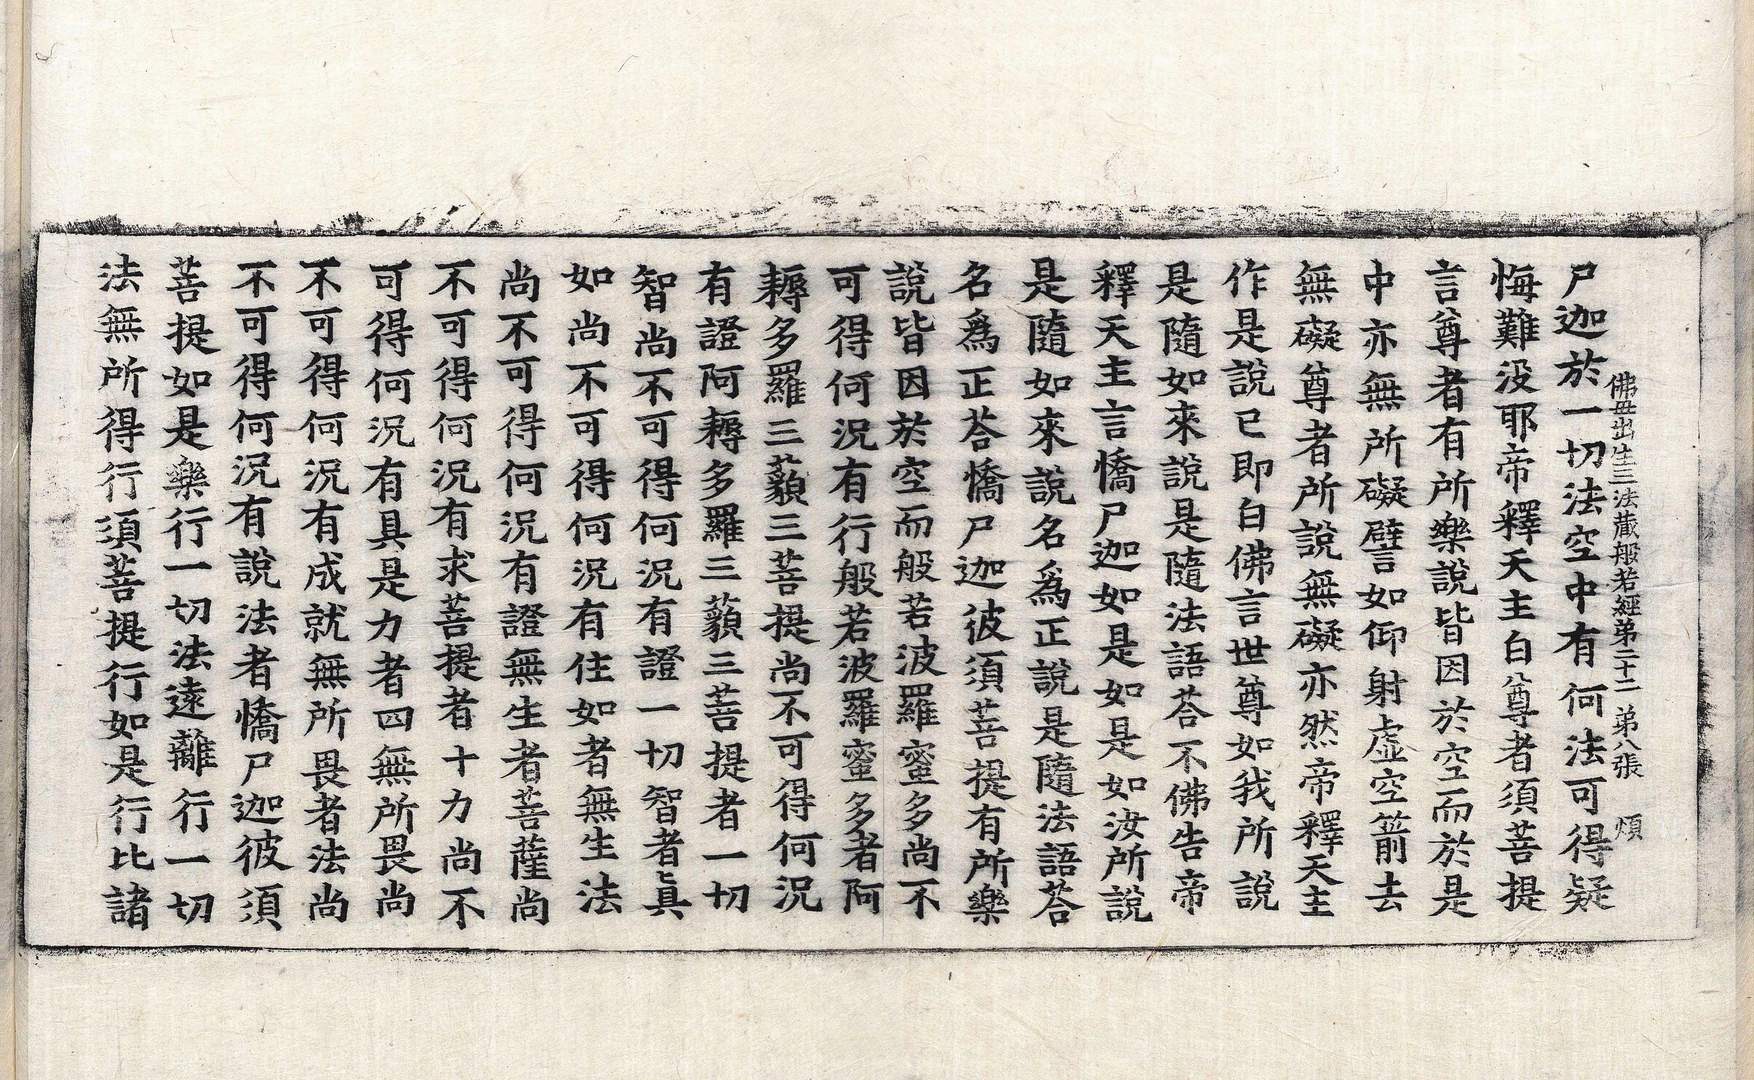 佛母出生三法藏般若經第二十二 第八張 煩
尸迦於一切法空中有何法可得疑
悔難没耶帝釋天主白尊者須菩提
言尊者有所樂說皆因於空而於是
中亦無所礙譬如仰射虛空箭去
無礙尊者所說無礙亦然帝釋天主
作是說已即白佛言世尊如我所說
是隨如來說是隨法語荅不佛告帝
釋天主言憍尸迦如是如是如汝所說
是隨如來說名爲正說是隨法語荅
名爲正荅憍尸迦彼須菩提有所樂
說皆因於空而般若波羅蜜多尚不
可得何況有行般若波羅蜜多者阿
耨多羅三藐三菩提尚不可得何況
有證阿耨多羅三藐三菩提者一切
智尚不可得何況有證一切智者真
如尚不可得何況有住如者無生法
尚不可得何況有證無生者菩薩尚
不可得何況有求菩提者十力尚不
可得何況有具是力者四無所畏尚
不可得何況有成就無所畏者法尚
不可得何況有說法者憍尸迦彼須
菩提如是樂行一切法遠離行一切
法無所得行須菩提行如是行比諸